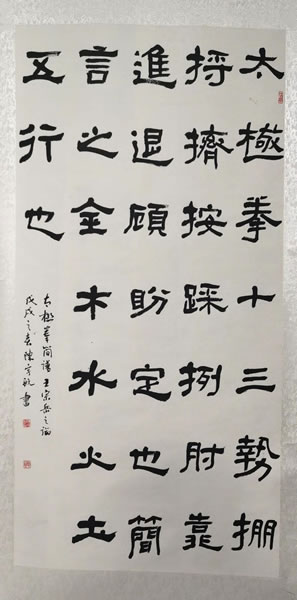 太極拳十三勢掤
捋擠按踩挒肘靠
進退顧盼定也簡
言之金木水火土
五行也
太極拳簡譜王宗岳之論
戊戌之春陳書